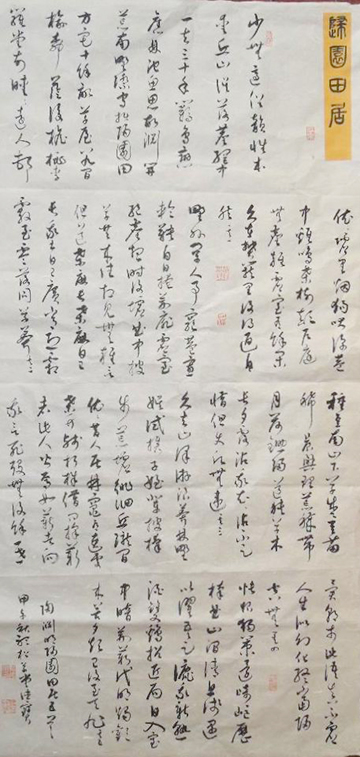 歸園田居
少無適俗韻性本
愛丘山誤落塵網中
一去三十年羈鳥戀
舊林池魚思故淵開
荒南野際守拙歸園田
方宅十餘畝草屋八九間
榆柳蔭後桃李
羅堂前曖曖遠人村
依依墟里煙狗吠深巷
中雞鳴桑樹顛戶庭
無塵雜虛室有餘閒
久在樊籠里復得返自
然
野外罕人事窮巷寡
輪鞅白日掩荊扉虛室
絕塵想時復墟曲中披
草共來往相見無雜言
但道桑麻長桑麻日已
長我土日已廣常恐霜
霰至零落同草莽
種豆南山下草盛豆苗
稀晨興理荒穢帶
月荷鋤歸道狹草木
長夕露沾我衣衣沾不足
惜但使願無違
久去山澤游浪莽林野
娛試攜子姪輩披榛
步荒墟徘徊丘隴間
依依昔人居井竈有遺處
桑竹殘朽株借問採薪
者此人皆焉如薪者向
我言死歿無復餘一世
異朝市此語真不虛
人生似幻化終當歸
空無
悵恨獨策還崎嶇歷
榛曲山澗清且淺遇
以濯吾足漉我新熟
酒隻雞招近局日入室
中暗荊薪代明燭歡
來苦夕短已復至天旭
陶淵明歸園田居五首
甲午秋